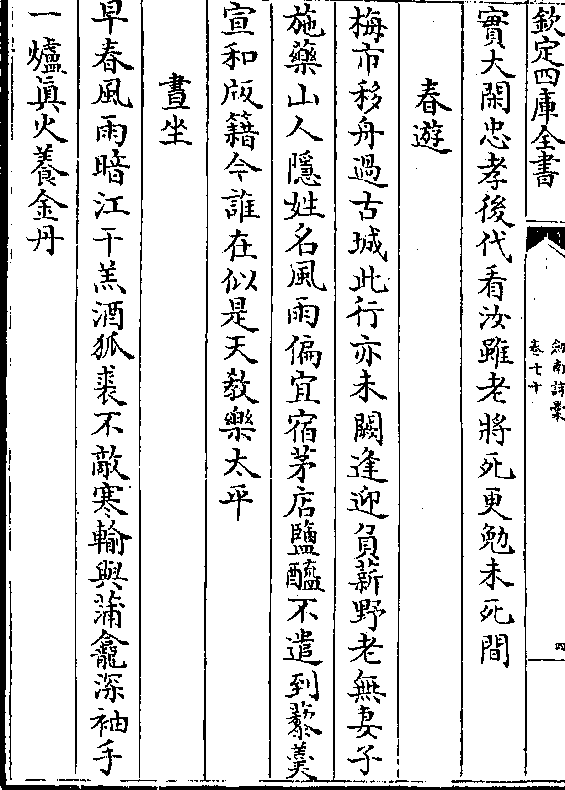 欽定四庫全書
劍南詩藁
卷七十
四
實大閑忠孝後代看汝雖老將死更勉未死間
春遊
梅市移舟過古城此行亦未闕逢迎負薪野老無妻子
施藥山人隱姓名風雨偏宜宿茅店鹽醯不遣到藜羮
宣和版籍今誰在似是天教樂太平
晝坐
早春風雨暗江干羔酒狐裘不敵寒輸與蒲龕深袖手
一爐眞火養金丹